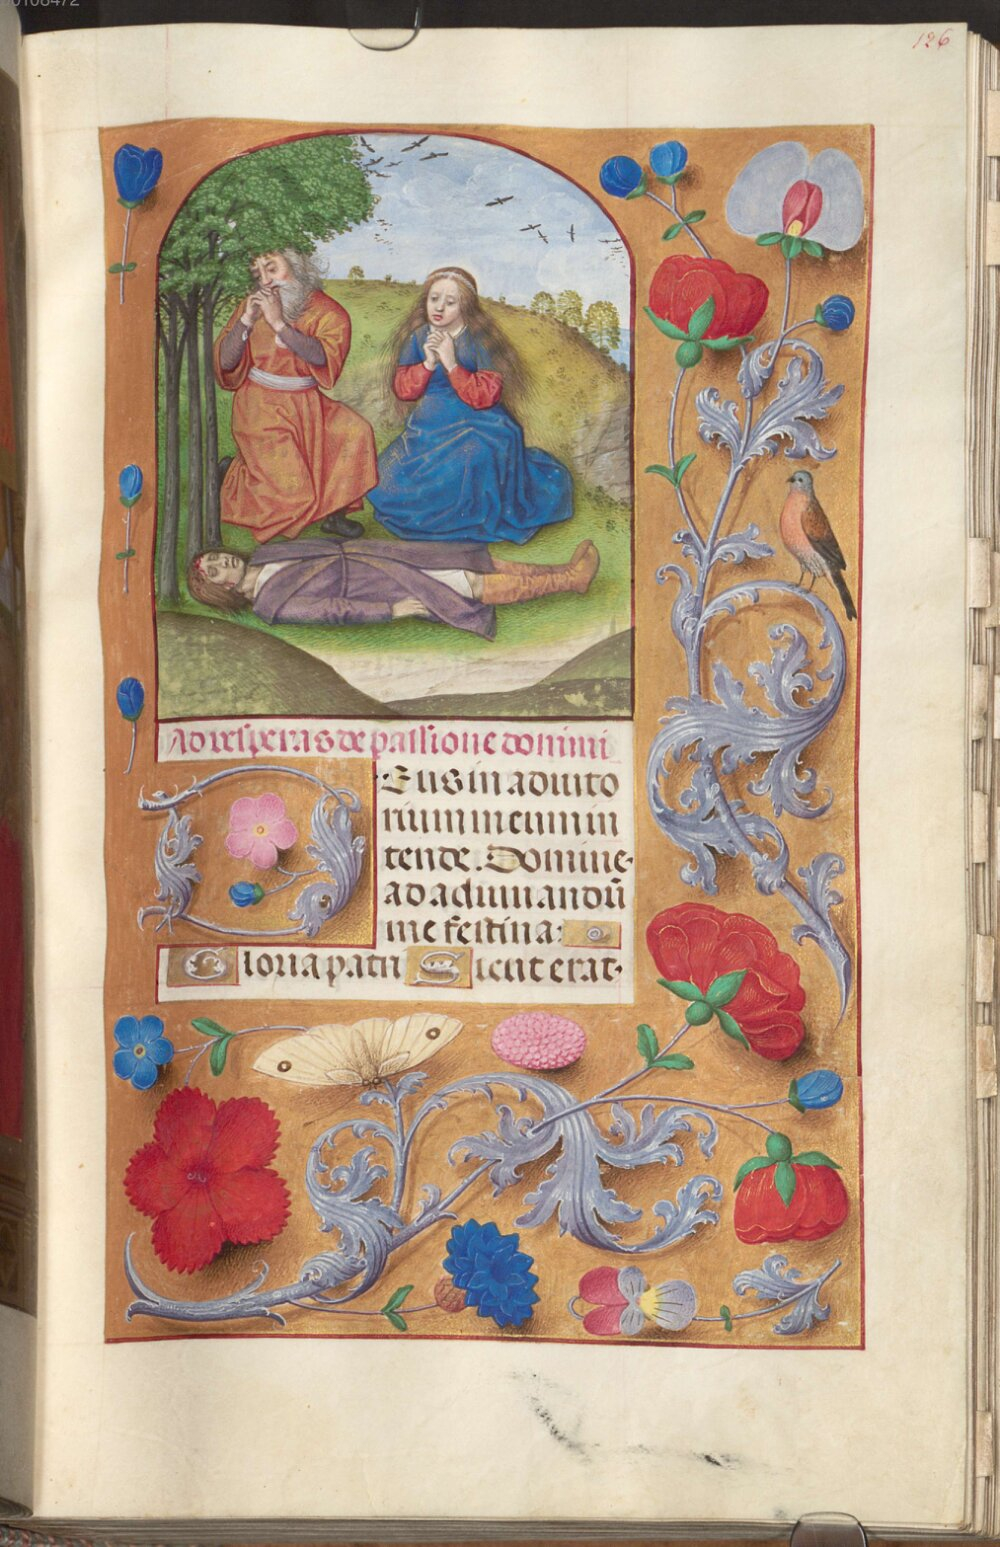 00108472
126
Ad vesperas de passione domini
Deus in adiuto
rium meum in
tende. Domine
ad adiuuandū
me festina:
Gloria patri Sicut erat.